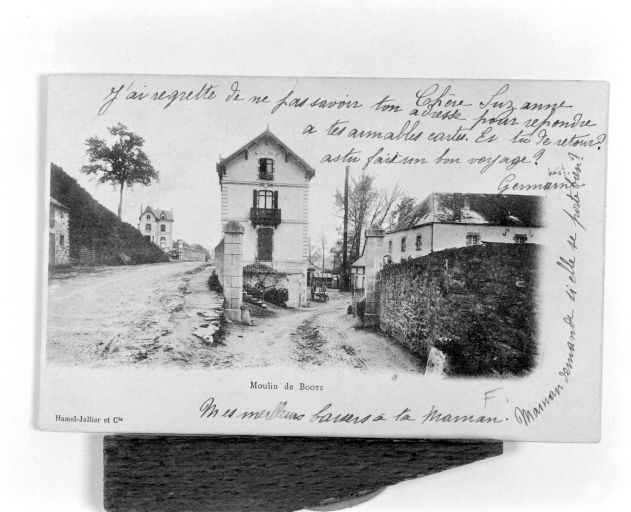 Chère Suzanne
J'ai regretté de ne pas savoir ton adresse pour répondre
a tes aimables cartes. Es tu de retour?
as tu fait un bon voyage?
Germaine
Maman demande si elle se porte bien?
Moulin de BOOTZ
Hamel-Jallier et Cie
Mes meilleurs baisers à ta Maman.
F.